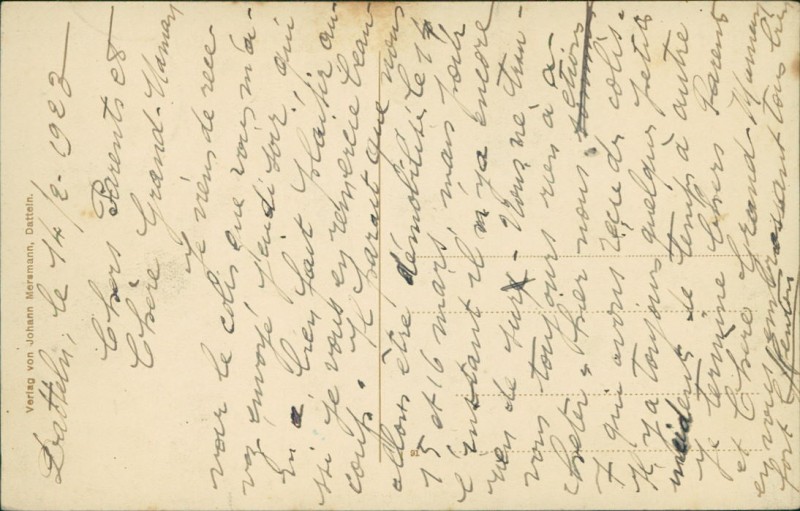 Verlag von Johann Mersmann, Datteln.
Datteln, le 14/2-1923
Chers Parents et
Chère Grand-Maman
Je viens de rece-
voir le colis que vous m'a-
vez envoyé jeudi soir, qui
m'a bien fait plaisir au-
ssi je vous en remercie beau-
coup. Il parait que nous
allons être démobilité le 14
15 et 16 mars mais pour
l'instant il n'y a encore
rien de sure - Nous ne trou-
vons toujours rien à a-
cheter. Hier nous étions
7 qui avons reçu des colis.
Il y a toujours quelques petits
incidents de temps à autre
Je termine Chers Parents
et Chère Grand-Maman
en vous embrassant tous bien
fort
91